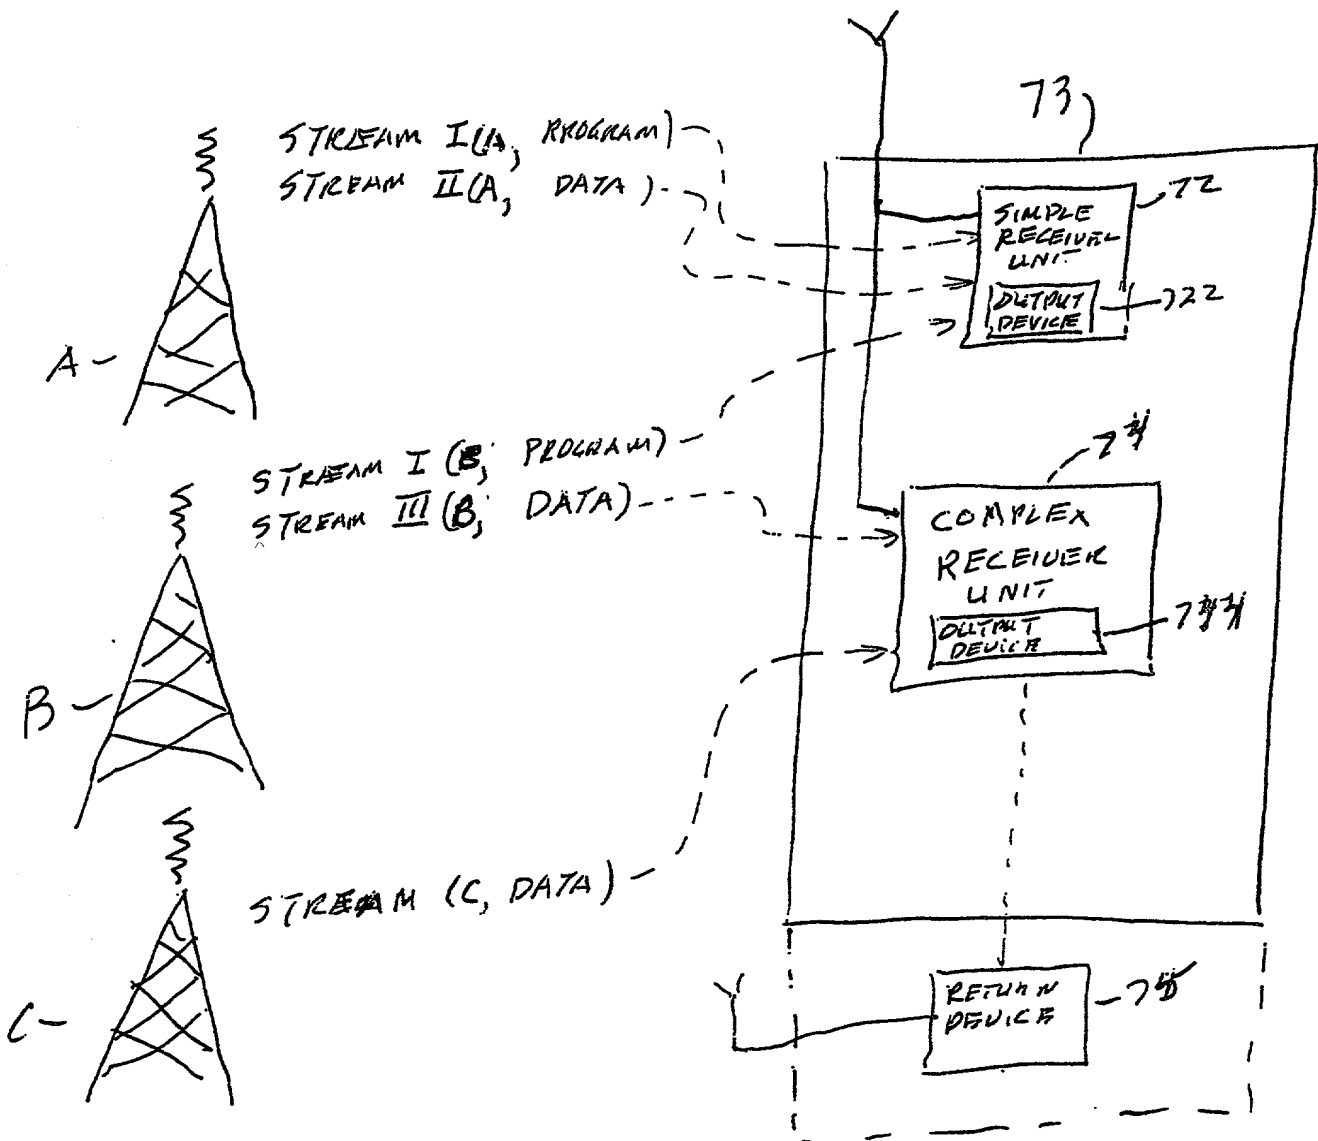 73
STREAM I(A, PROGRAM)
STREAM II(A, DATA)
72
SIMPLE
RECEIVER
UNIT
OUTPUT
DEVICE
722
A
STREAM I (B; PROGRAM)
STREAM III (B; DATA)
COMPLEX
RECEIVER
UNIT
OUTPUT
DEVICE
B
STREAM (C, DATA)
C
RETURN
DEVICE
75